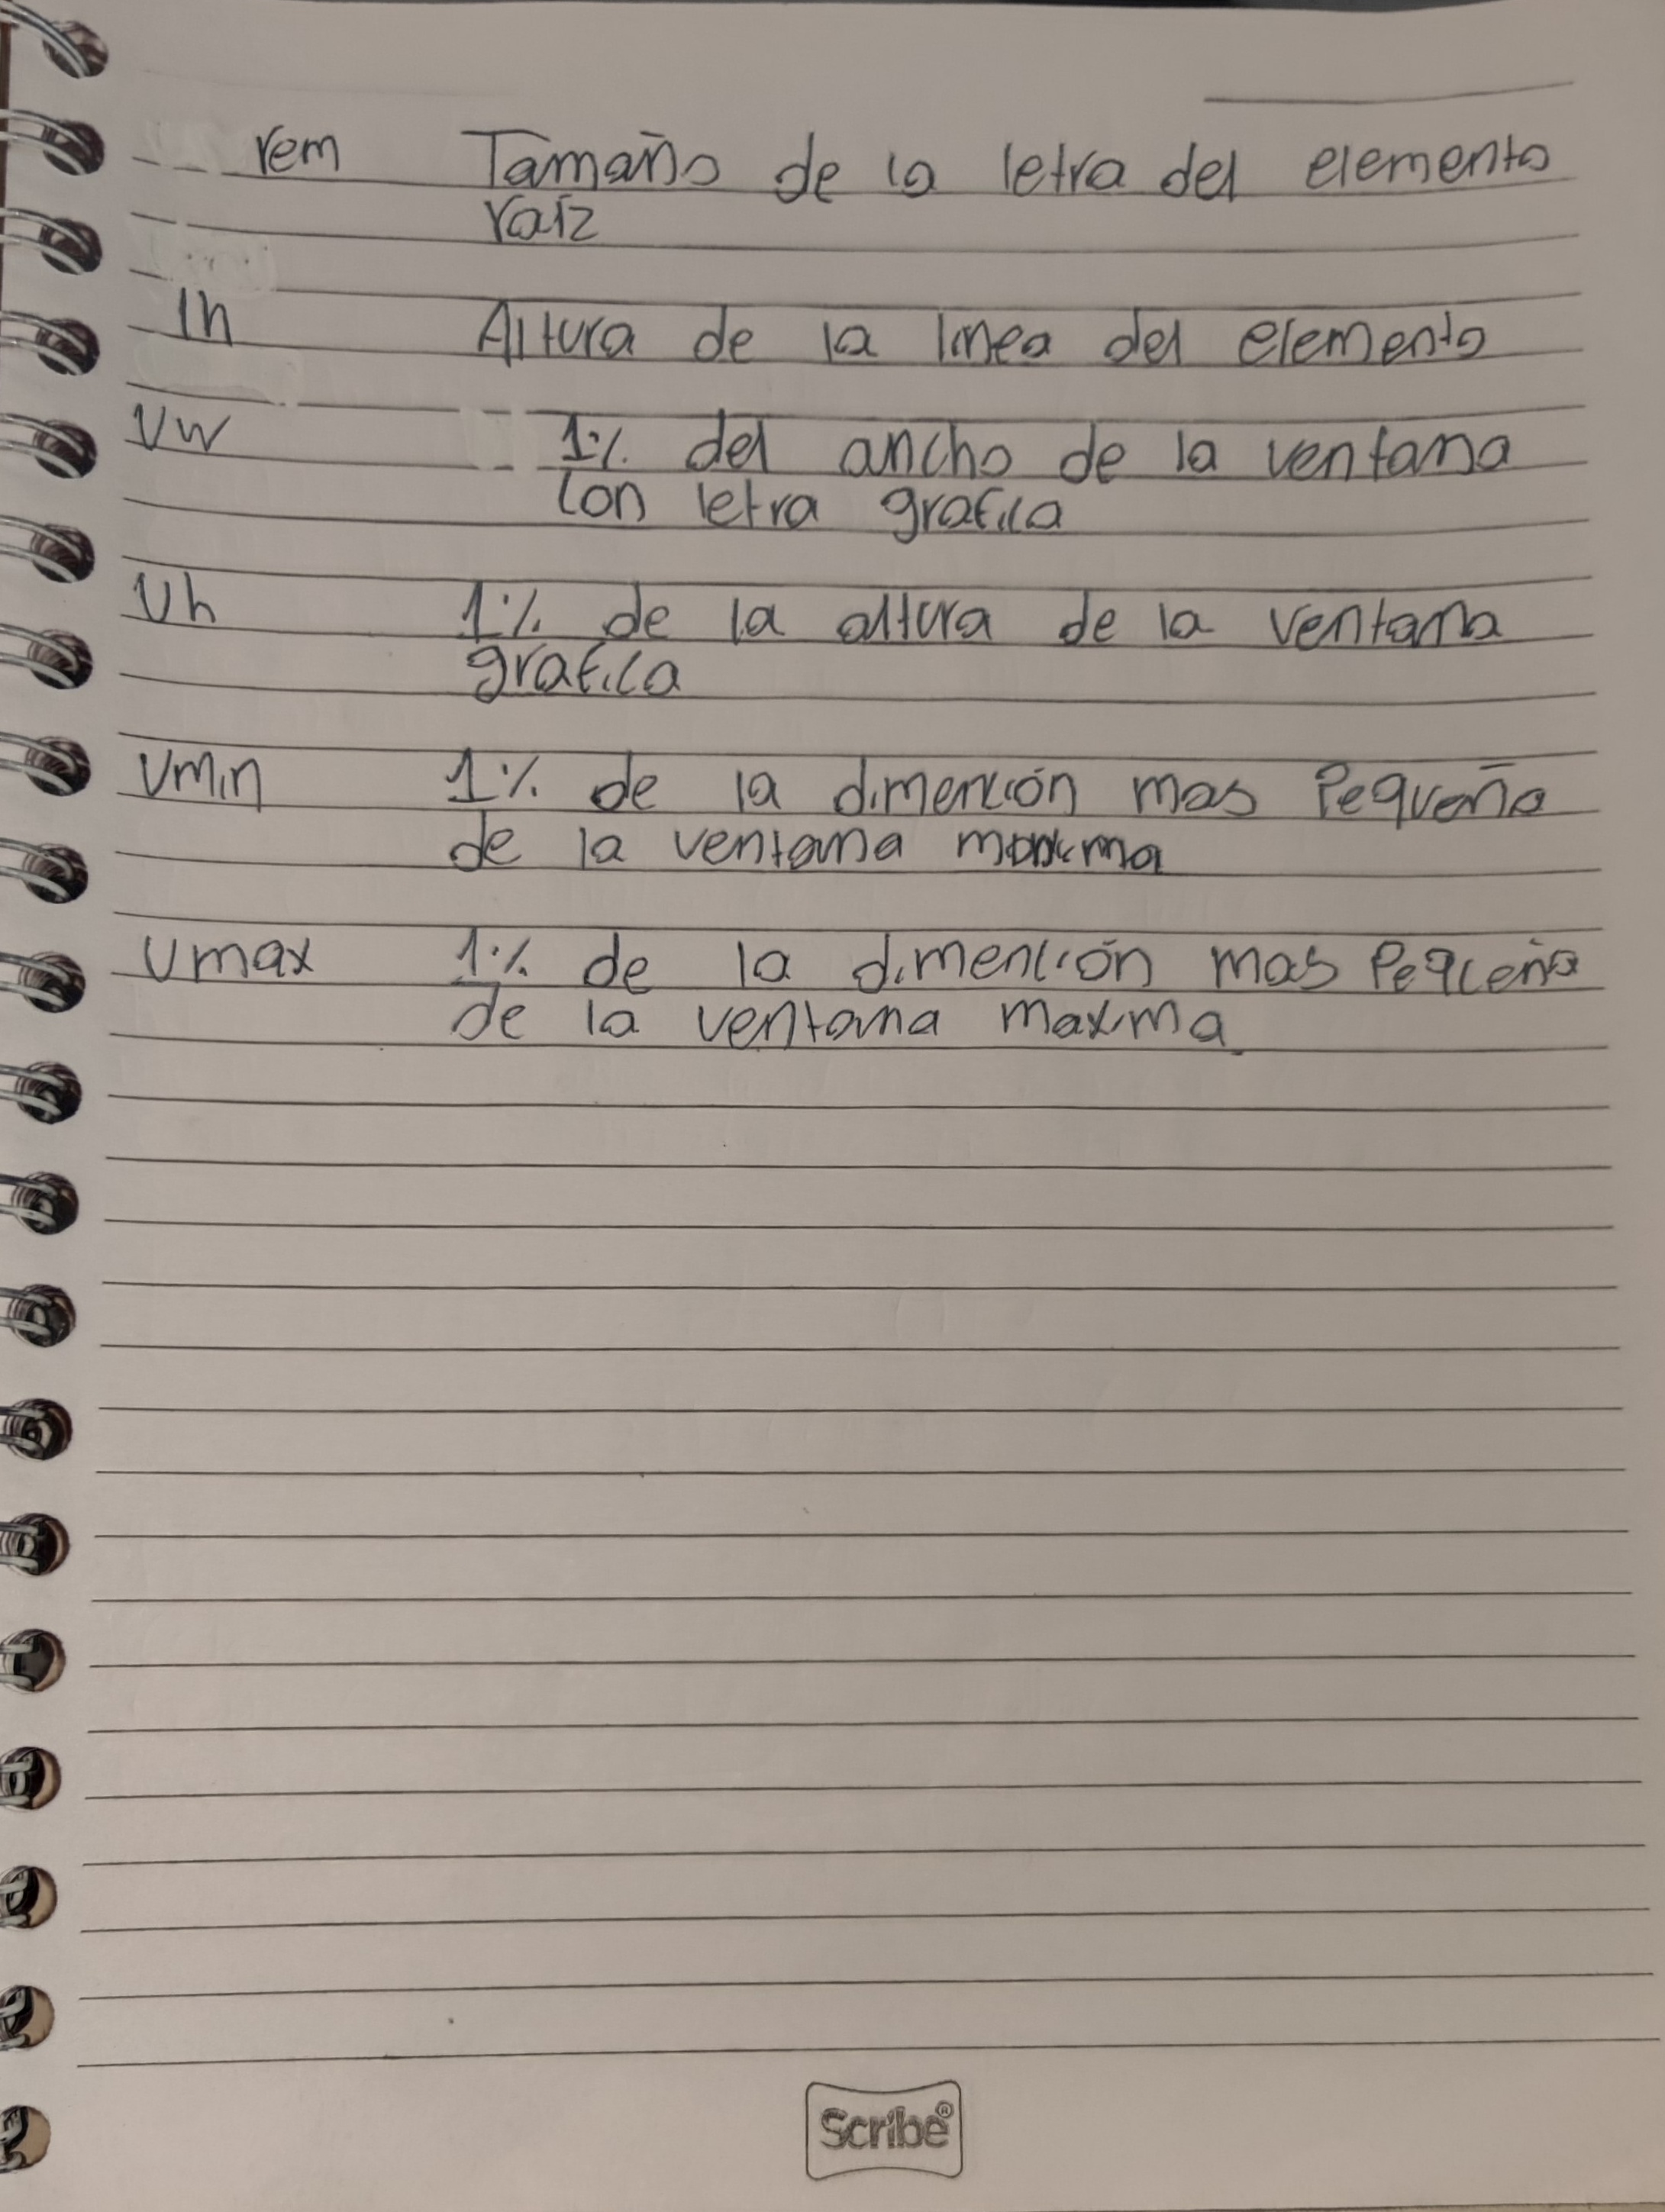 rem Tamaño de la letra del elemento
raíz
lh Altura de la linea del elemento
Vw 1% del ancho de la ventana
con letra grafica
Vh 1% de la altura de la ventana
grafica
Vmin 1% de la dimención mas Pequeña
de la ventana
Vmax 1% de la dimención mas Pequeña
de la ventana maxima
Scribe®